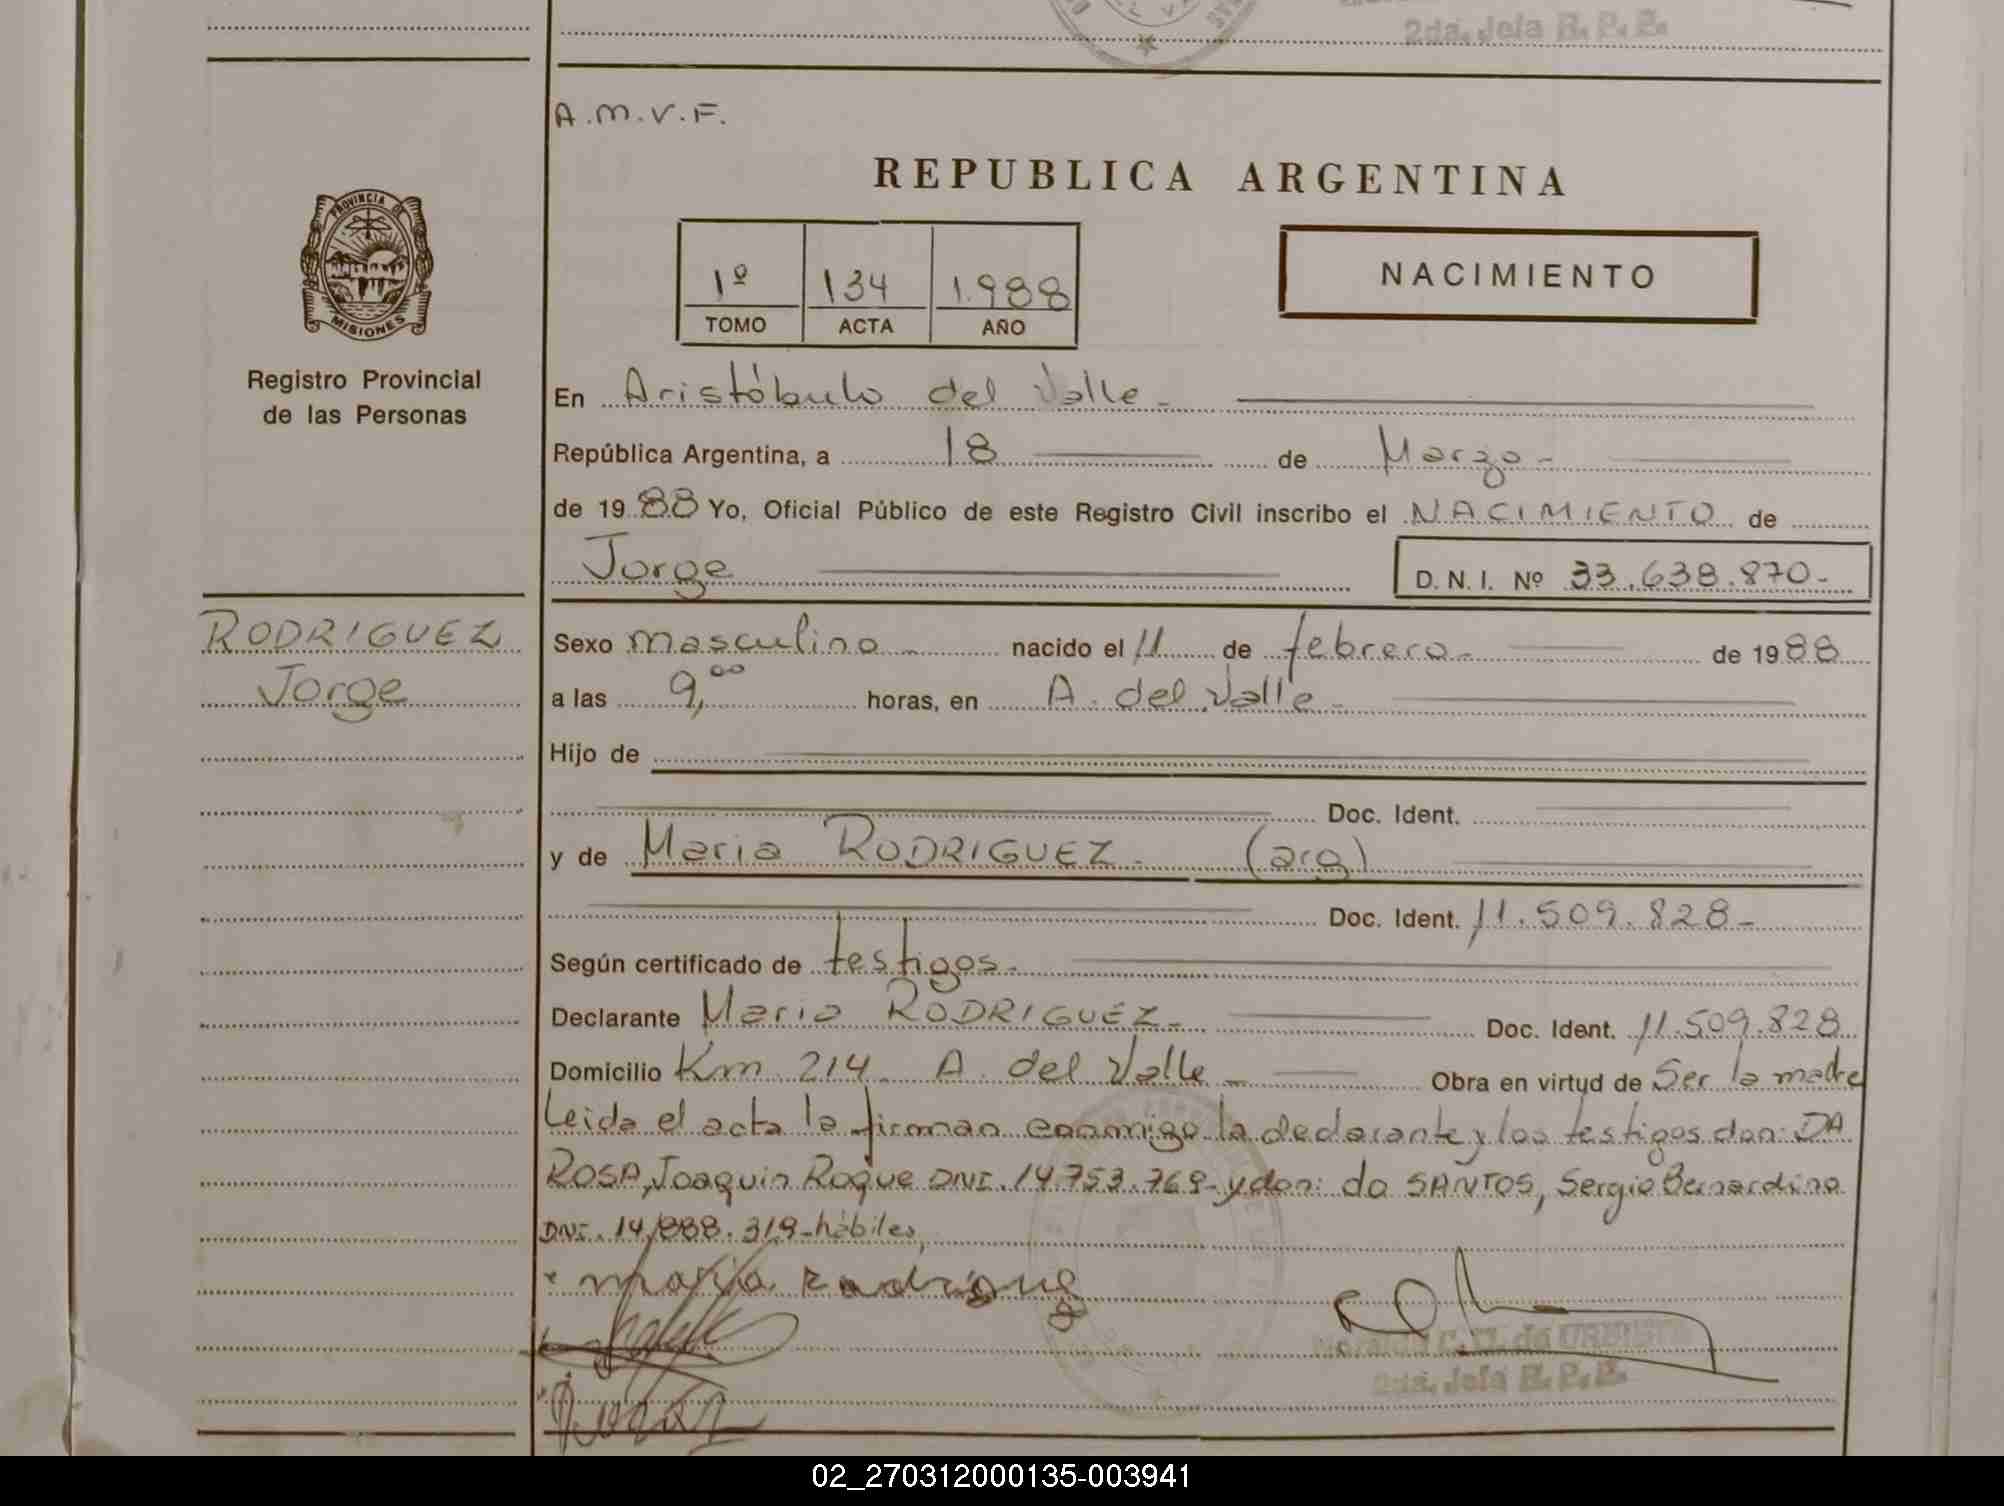 2da. Jefa R. P. P.
A.M.V.F.
REPUBLICA ARGENTINA
PROVINCIA DE
MISIONES
Registro Provincial
de las Personas
1º 134 1.988
TOMO ACTA AÑO
NACIMIENTO
En Aristóbulo del Valle-
República Argentina, a 18 de Marzo-
de 1988 Yo, Oficial Público de este Registro Civil inscribo el NACIMIENTO de
Jorge D. N. I. Nº 33.638.870-
RODRIGUEZ
Jorge
Sexo masculino - nacido el 11 de febrero- de 1988
a las 9,00 horas, en A. del Valle-
Hijo de
Doc. Ident.
y de Maria RODRIGUEZ- (arg)
Doc. Ident. 11.509.828-
Según certificado de testigos-
Declarante Maria RODRIGUEZ- Doc. Ident. 11.509.828
Domicilio Km 214 A. del Valle - Obra en virtud de Ser la madre
Leida el acta la firman conmigo la declarante y los testigos don: DA
ROSA, Joaquin Roque DNI. 14.753.769- y don: do SANTOS, Sergio Bernardino
DNI. 14.888.319-hábiles,
maria Rodriguez
de URBIETA
2da. Jefa R. P. P.
02_270312000135-003941